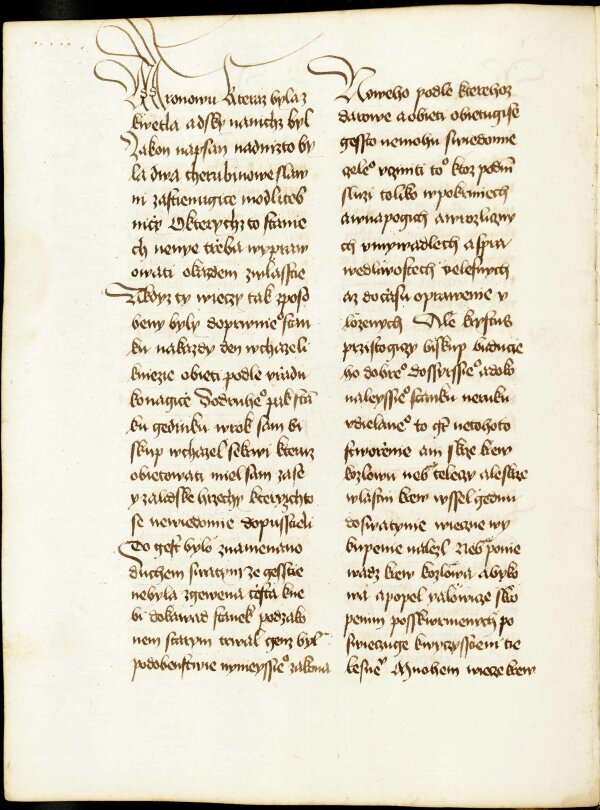 Aronowu kteraz bylaz
kwetla a dsky nanichz byl
Zakon napsan nadnizto by
la dwa cherubinowe slaw
ni zastieniugice modliteb
niczy Okterychz to stanie
ch nenye trzeba wypraw
owati okazdem zwlasstie
Akdyz ty wieczy tak zposo
beny byly doprwnie° stan
ku nakazdy den wchazeli
kniezie obieti podle urzadu
konagice Dodruhe° pak sta
ku gedinku wrok sam bi
skup wchazel sekrwi kteruz
obietowati miel sam zase
y zalidske hrzechy kterychzto
se newiedomie dopusstieli
To gest bylo znamenano
duchem swatym ze gesstie
nebyla zgewena cesta kne
bi dokawad stanek podzako
nem starym trwal genz byl
podobenstwie nynieyssie° zakona
Noweho podle kterehoz
darowe a obieti obietugi se
gessto nemohu swiedomie
gele° vcziniti to° ktoz podni
sluzi toliko wpokrmiech
a wnapogich a wrozlicny
ch vmywadlech a sprawe
wedlnostech telesnych
az do czasu oprawenie v
lozenych Ale krystus
przistogiczy biskup buducie
ho dobre° dosswissie° a doko
naleyssie° stanku ne ruku
vdielane° to gt netohoto
stworzenie ani skrze krew
kozlowu neb telecy ale skrze
wlastni krew wssel gednu
do swatynie wieczne wy
kupenie nalezl Neb ponie
wadz krew kozlowa a byko
wa a popel yalowicze skro
penim posskwrnenych po
swieczuge kwyczisstieni tie
lesne° Mnohem wiecze krew